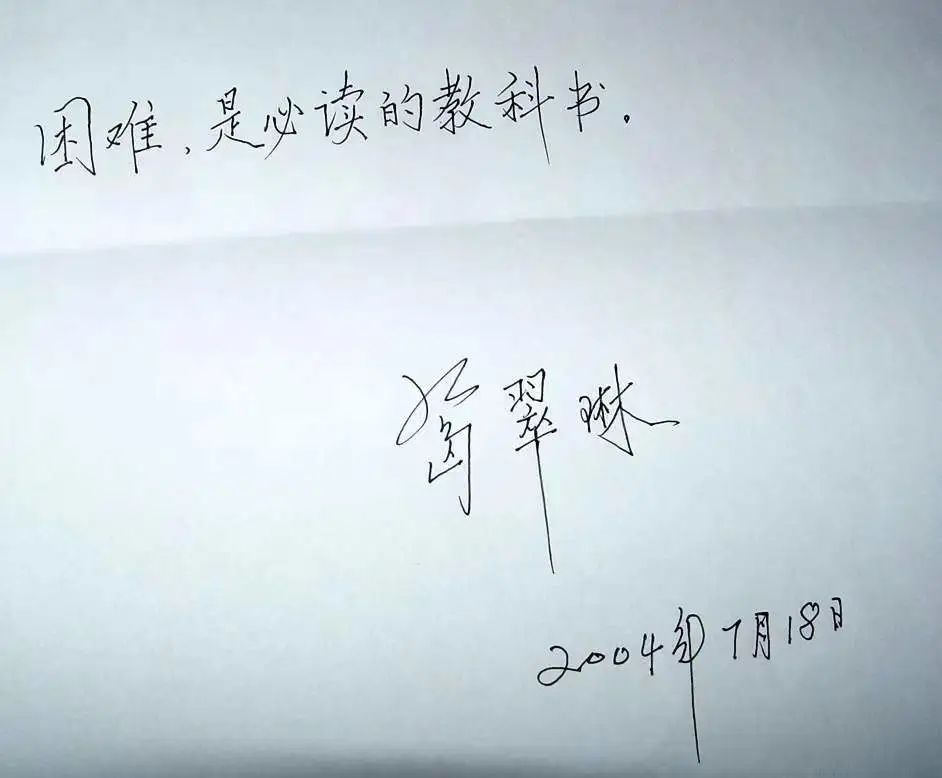 困难,是必读的教科书。
葛翠琳
2004年7月18日